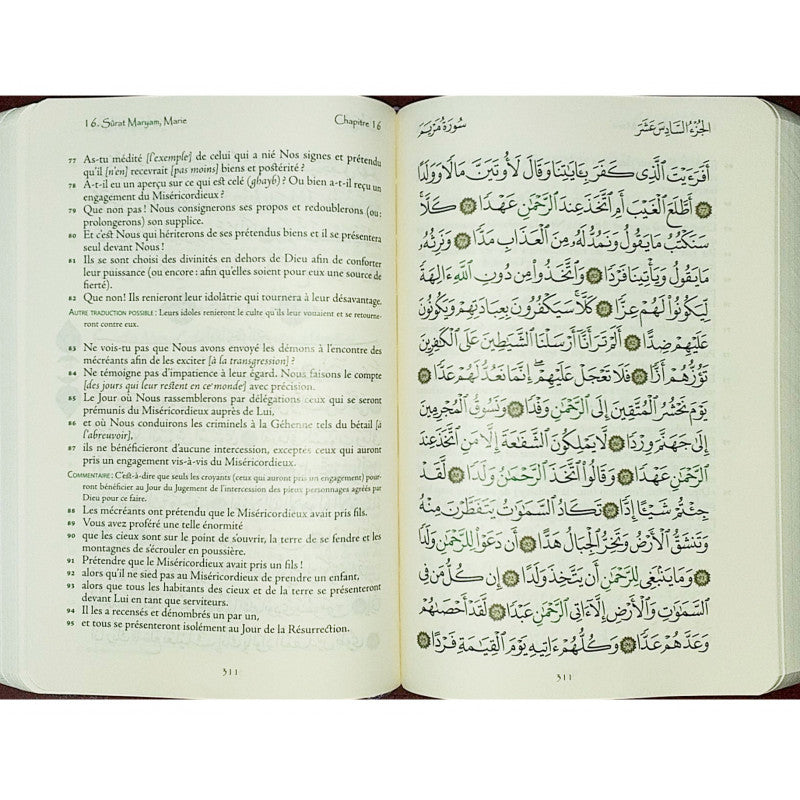 16. Sûrat Maryam, Marie Chapitre 16
77 As-tu médité [l'exemple] de celui qui a nié Nos signes et prétendu
qu'il [n'en] recevrait [pas moins] biens et postérité ?
78 A-t-il eu un aperçu sur ce qui est celé (ghayb) ? Ou bien a-t-il reçu un
engagement du Miséricordieux ?
79 Que non pas ! Nous consignerons ses propos et redoublerons (ou :
prolongerons) son supplice.
80 Et c'est Nous qui hériterons de ses prétendus biens et il se présentera
seul devant Nous !
81 Ils se sont choisi des divinités en dehors de Dieu afin de conforter
leur puissance (ou encore : afin qu'elles soient pour eux une source de
fierté).
82 Que non! Ils renieront leur idolâtrie qui tournera à leur désavantage.
Autre traduction possible : Leurs idoles renieront le culte qu'ils leur vouaient et se retourne-
ront contre eux.
83 Ne vois-tu pas que Nous avons envoyé les démons à l'encontre des
mécréants afin de les exciter [à la transgression] ?
84 Ne témoigne pas d'impatience à leur égard. Nous faisons le compte
[des jours qui leur restent en ce monde] avec précision.
85 Le Jour où Nous rassemblerons par délégations ceux qui se seront
prémunis du Miséricordieux auprès de Lui,
86 et où Nous conduirons les criminels à la Géhenne tels du bétail [à
l'abreuvoir],
87 ils ne bénéficieront d'aucune intercession, exceptés ceux qui auront
pris un engagement vis-à-vis du Miséricordieux.
Commentaire : C'est-à-dire que seuls les croyants (ceux qui auront pris un engagement) pour-
ront bénéficier au Jour du Jugement de l'intercession des pieux personnages agréés par
Dieu pour ce faire.
88 Les mécréants ont prétendu que le Miséricordieux avait pris fils.
89 Vous avez proféré une telle énormité
90 que les cieux sont sur le point de s'ouvrir, la terre de se fendre et les
montagnes de s'écrouler en poussière.
91 Prétendre que le Miséricordieux avait pris un fils !
92 alors qu'il ne sied pas au Miséricordieux de prendre un enfant,
93 alors que tous les habitants des cieux et de la terre se présenteront
devant Lui en tant que serviteurs.
94 Il les a recensés et dénombrés un par un,
95 et tous se présenteront isolément au Jour de la Résurrection.
311
سُورَةُ مَرْيَمَ الجُزْءُ السَّادِسَ عَشَرَ
أَفَرَءَيْتَ ٱلَّذِى كَفَرَ بِـَٔايَـٰتِنَا وَقَالَ لَأُوتَيَنَّ مَالًا وَوَلَدًا
٧٧ أَطَّلَعَ ٱلْغَيْبَ أَمِ ٱتَّخَذَ عِندَ ٱلرَّحْمَـٰنِ عَهْدًا ٧٨ كَلَّا ۚ
سَنَكْتُبُ مَا يَقُولُ وَنَمُدُّ لَهُۥ مِنَ ٱلْعَذَابِ مَدًّا ٧٩ وَنَرِثُهُۥ
مَا يَقُولُ وَيَأْتِينَا فَرْدًا ٨٠ وَٱتَّخَذُوا۟ مِن دُونِ ٱللَّهِ ءَالِهَةً
لِّيَكُونُوا۟ لَهُمْ عِزًّا ٨١ كَلَّا ۚ سَيَكْفُرُونَ بِعِبَادَتِهِمْ وَيَكُونُونَ
عَلَيْهِمْ ضِدًّا ٨٢ أَلَمْ تَرَ أَنَّآ أَرْسَلْنَا ٱلشَّيَـٰطِينَ عَلَى ٱلْكَـٰفِرِينَ
تَؤُزُّهُمْ أَزًّا ٨٣ فَلَا تَعْجَلْ عَلَيْهِمْ ۖ إِنَّمَا نَعُدُّ لَهُمْ عَدًّا ٨٤
يَوْمَ نَحْشُرُ ٱلْمُتَّقِينَ إِلَى ٱلرَّحْمَـٰنِ وَفْدًا ٨٥ وَنَسُوقُ ٱلْمُجْرِمِينَ
إِلَىٰ جَهَنَّمَ وِرْدًا ٨٦ لَّا يَمْلِكُونَ ٱلشَّفَـٰعَةَ إِلَّا مَنِ ٱتَّخَذَ عِندَ
ٱلرَّحْمَـٰنِ عَهْدًا ٨٧ وَقَالُوا۟ ٱتَّخَذَ ٱلرَّحْمَـٰنُ وَلَدًا ٨٨ لَّقَدْ
جِئْتُمْ شَيْـًٔا إِدًّا ٨٩ تَكَادُ ٱلسَّمَـٰوَٰتُ يَتَفَطَّرْنَ مِنْهُ
وَتَنشَقُّ ٱلْأَرْضُ وَتَخِرُّ ٱلْجِبَالُ هَدًّا ٩٠ أَن دَعَوْا۟ لِلرَّحْمَـٰنِ وَلَدًا
٩١ وَمَا يَنۢبَغِى لِلرَّحْمَـٰنِ أَن يَتَّخِذَ وَلَدًا ٩٢ إِن كُلُّ مَن فِى
ٱلسَّمَـٰوَٰتِ وَٱلْأَرْضِ إِلَّآ ءَاتِى ٱلرَّحْمَـٰنِ عَبْدًا ٩٣ لَّقَدْ أَحْصَىٰهُمْ
وَعَدَّهُمْ عَدًّا ٩٤ وَكُلُّهُمْ ءَاتِيهِ يَوْمَ ٱلْقِيَـٰمَةِ فَرْدًا ٩٥
311